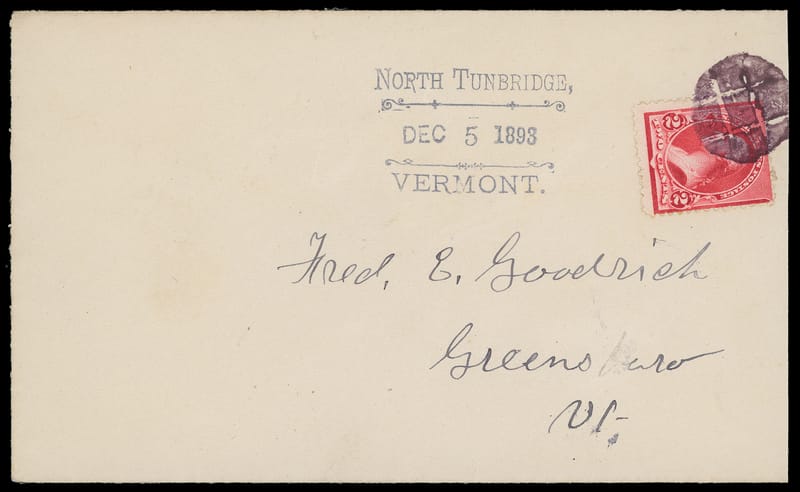 NORTH TUNBRIDGE,
DEC 5 1893
VERMONT.
2 2
TWO CENTS
Fred. E. Goodrich
Greensboro
Vt.